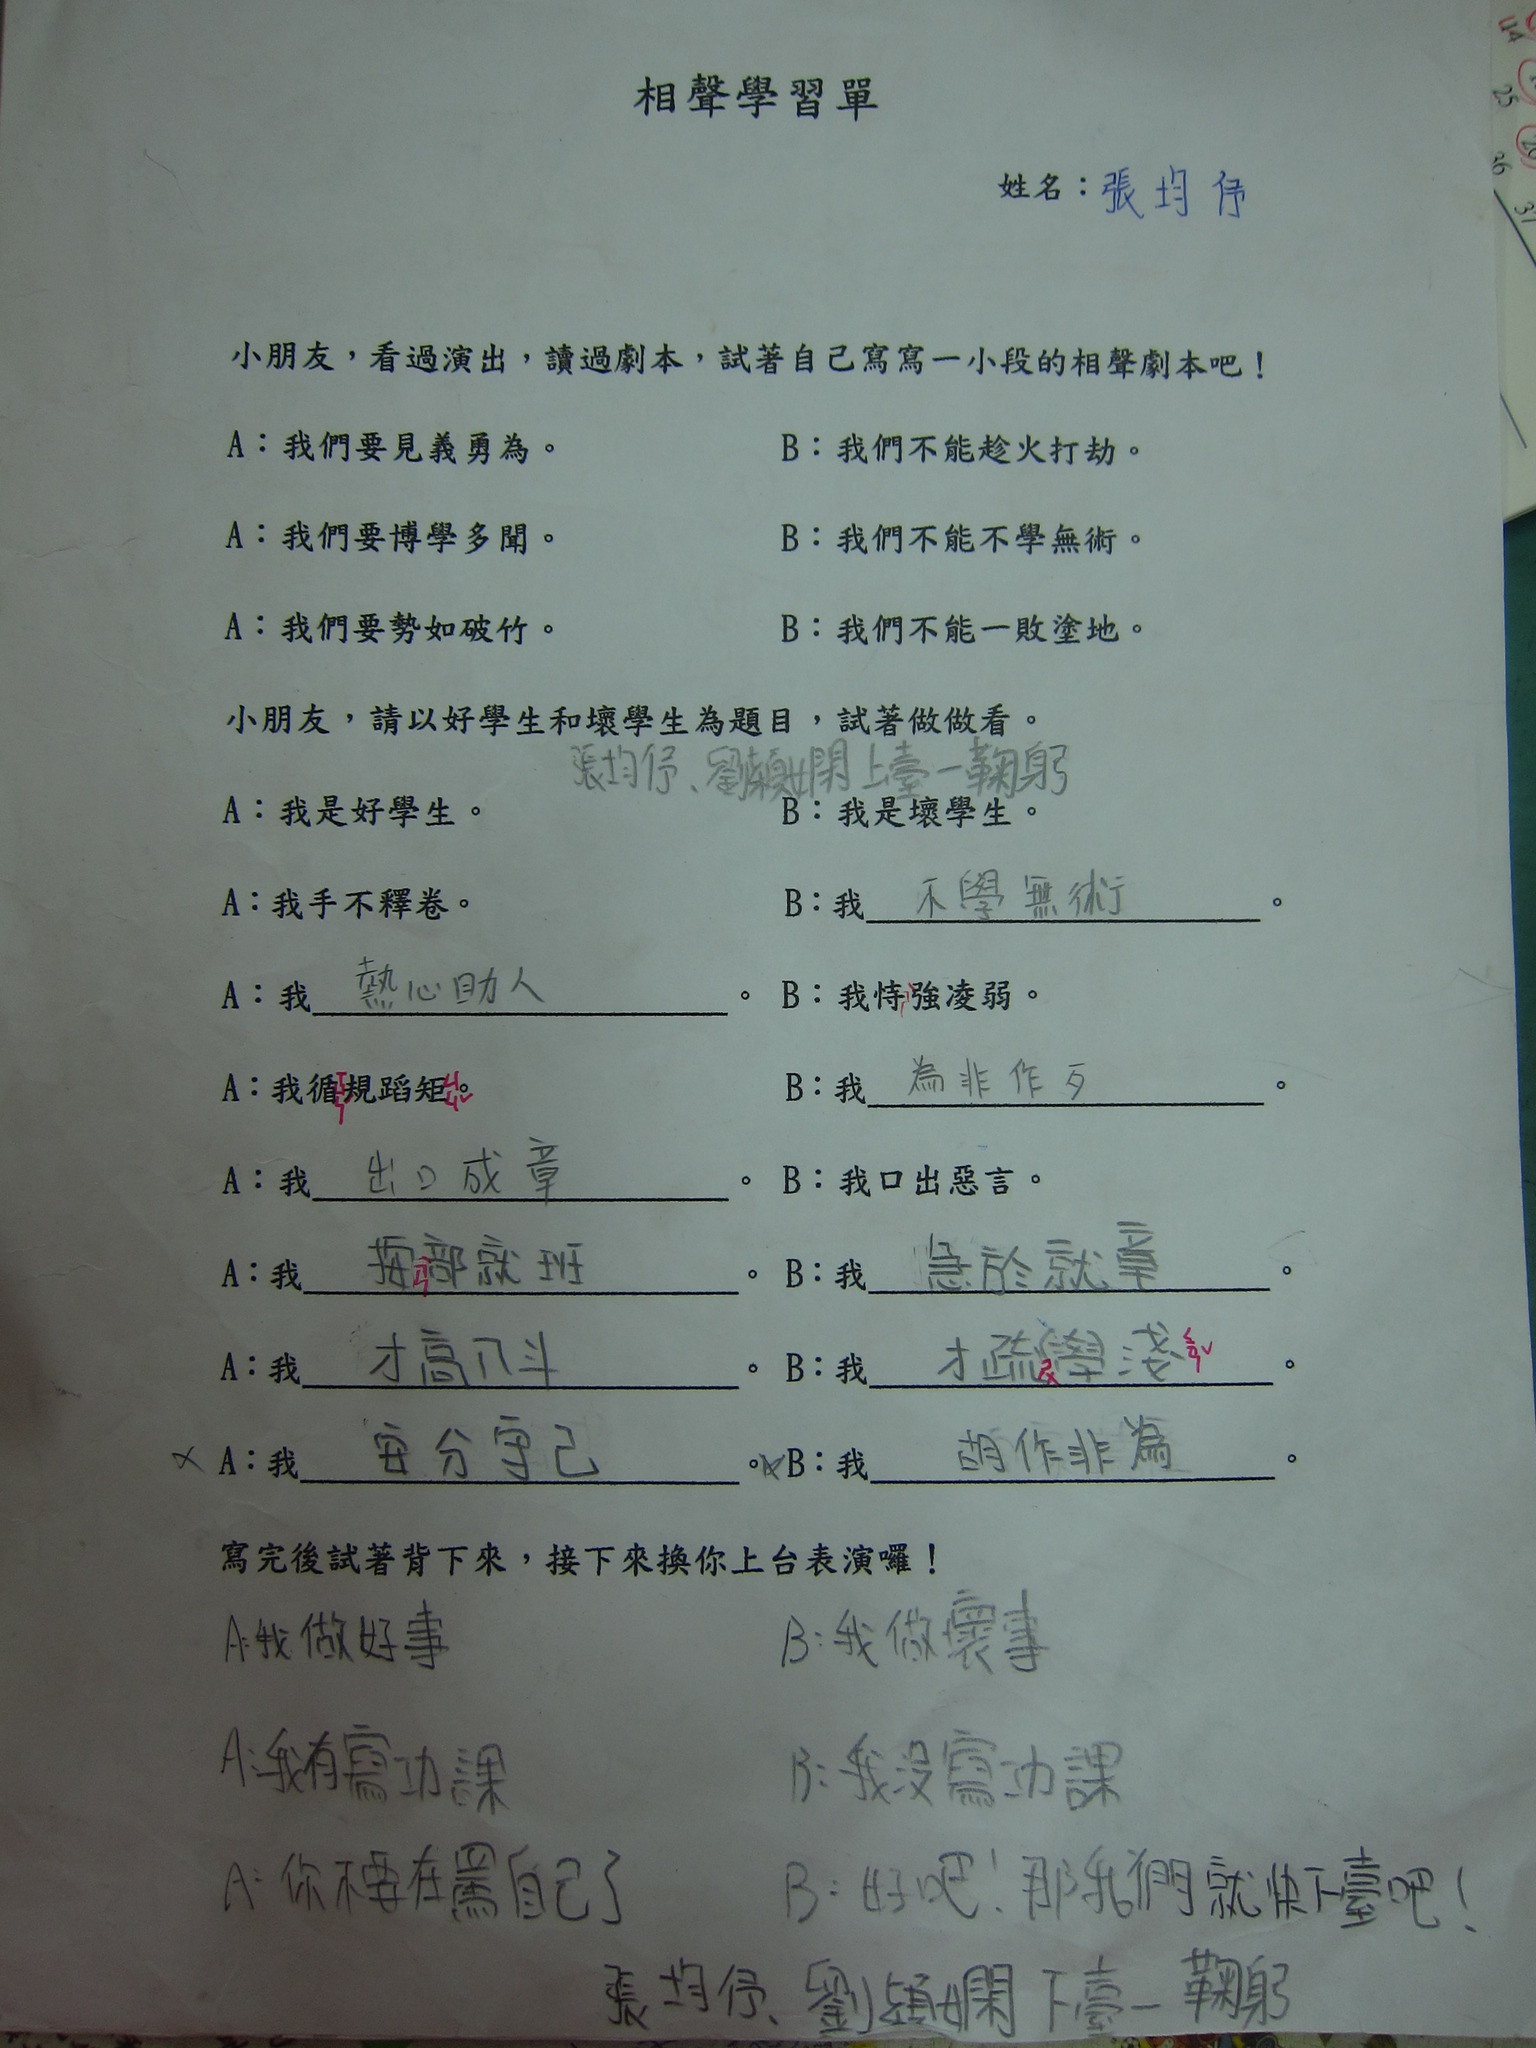 相聲學習單
姓名：張均伃
小朋友，看過演出，讀過劇本，試著自己寫寫一小段的相聲劇本吧！
A：我們要見義勇為。 B：我們不能趁火打劫。
A：我們要博學多聞。 B：我們不能不學無術。
A：我們要勢如破竹。 B：我們不能一敗塗地。
小朋友，請以好學生和壞學生為題目，試著做做看。
張均伃、劉穎嫻上臺一鞠躬
A：我是好學生。 B：我是壞學生。
A：我手不釋卷。 B：我不學無術。
A：我熱心助人。 B：我恃強凌弱。
A：我循規蹈矩。 B：我為非作歹。
A：我出口成章。 B：我口出惡言。
A：我按部就班。 B：我急於就章。
A：我才高八斗。 B：我才疏學淺。
A：我安分守己。 B：我胡作非為。
寫完後試著背下來，接下來換你上台表演囉！
A：我做好事 B：我做壞事
A：我有寫功課 B：我沒寫功課
A：你不要在罵自己了 B：好吧！那我們就快下臺吧！
張均伃、劉穎嫻下臺一鞠躬